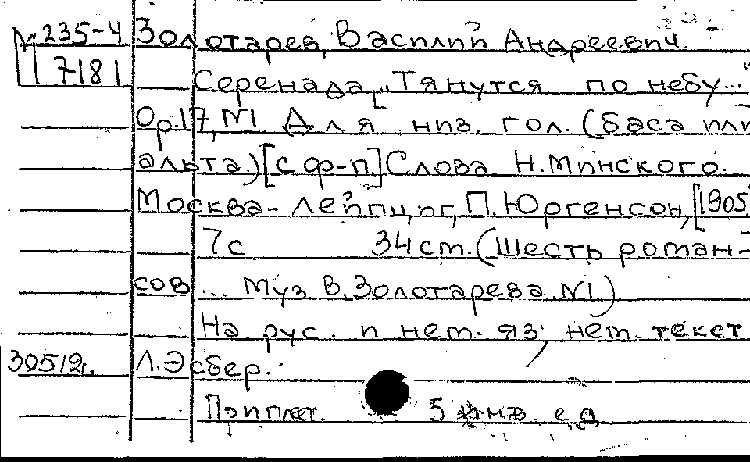 М 235-4 Золотарев, Василий Андреевич.
7181 Серенада „Тянутся по небу..."
Op.17, №1. Для низ. гол. (баса или
альта.) [с ф-п] Слова Н.Минского.
Москва-Лейпциг, П.Юргенсон, [1905
7с 34см. (Шесть роман-
сов ... Муз В.Золотарева №1)
На рус. и нем. яз; нем. текст
30512г. Л.Эсбер.
Приплет. 5